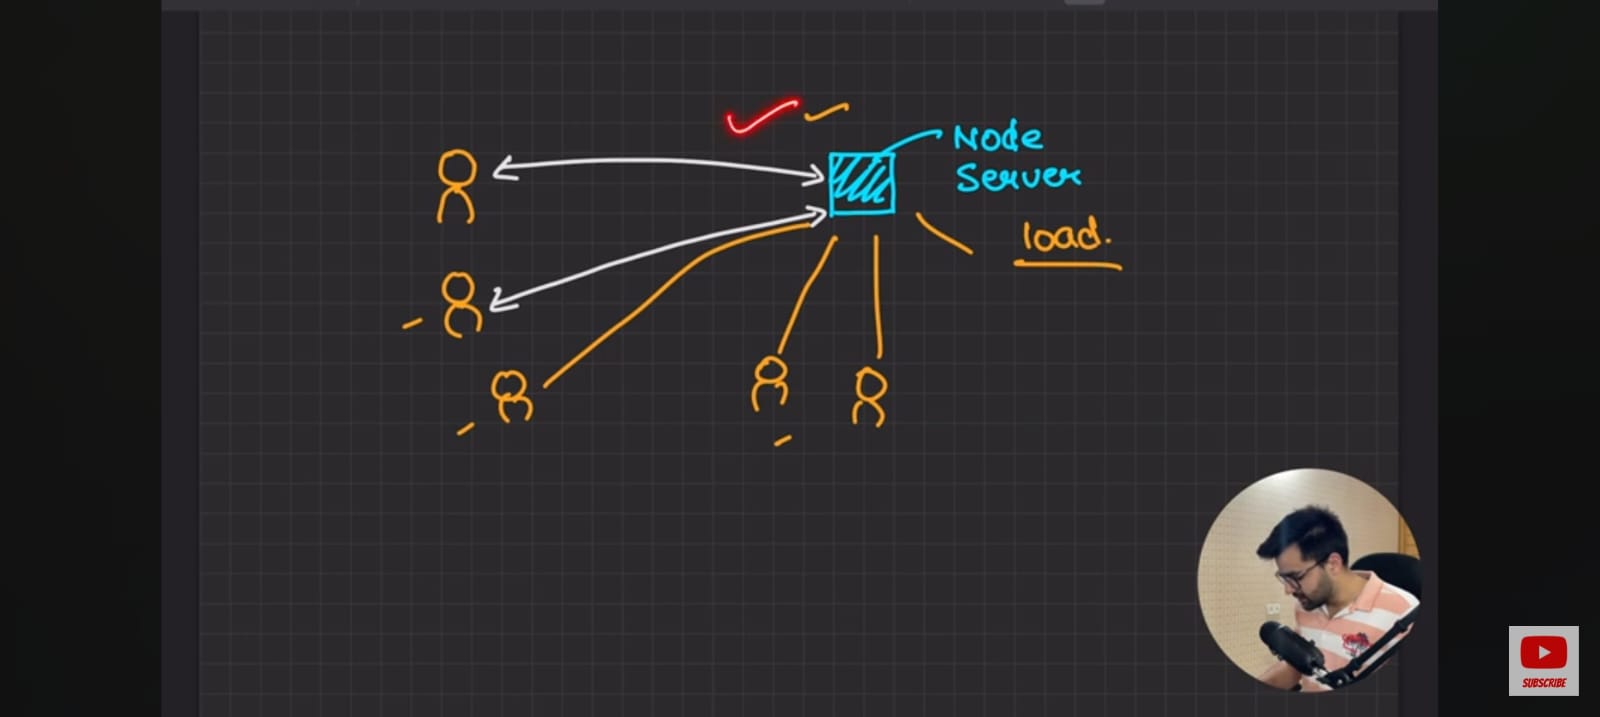 Node
Server
load.
SUBSCRIBE